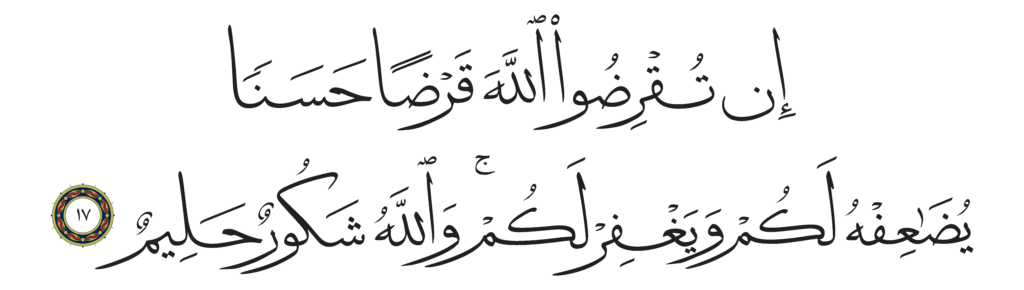 إِن تُقْرِضُوا۟ ٱللَّهَ قَرْضًا حَسَنًا
يُضَـٰعِفْهُ لَكُمْ وَيَغْفِرْ لَكُمْ ۚ وَٱللَّهُ شَكُورٌ حَلِيمٌ ١٧